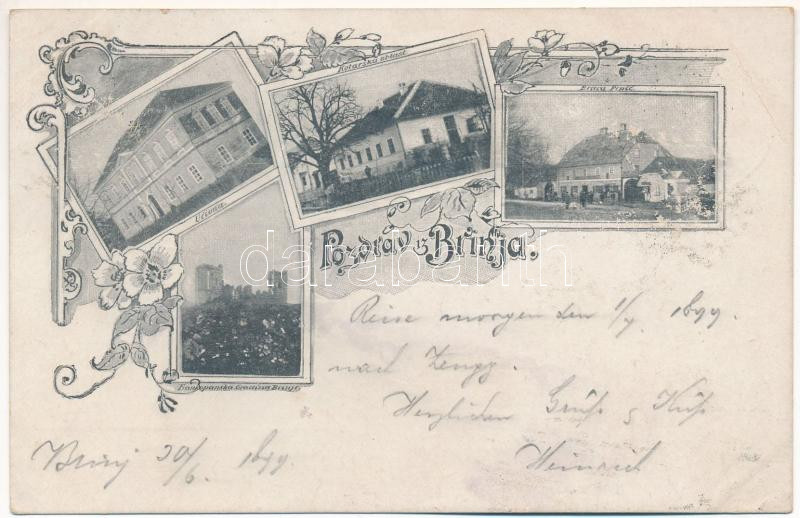 Kotarska oblast
Braća Pinić
Učiona.
Pozdrav iz Brinja.
darabanth
Frankopanska Gradina Brinje
Reise morgen den 1/7 1899.
nach Zengg.
Herzlichen Gruß & Kuß
Heinrich
Brinj 30/6. 1899.